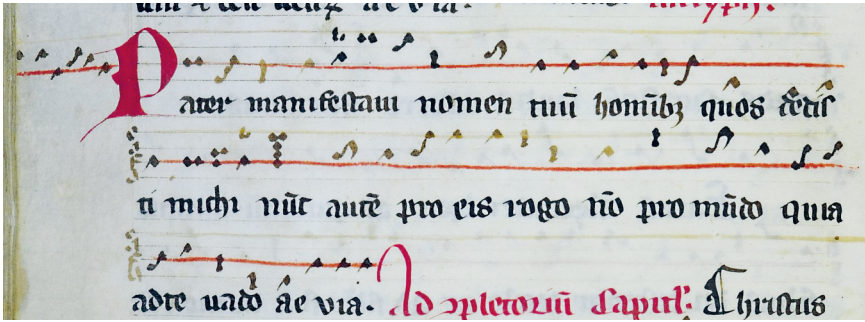 Pater manifestaui nomen tuū homīibꝫ quos dedis
ti michi nūc autē pro eis rogo nō pro mūdo quia
adte uado ae via. Ad ꝯpletoriū Capitl'. Christus